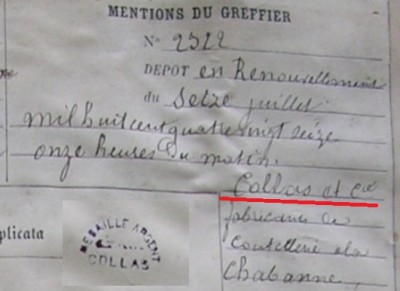 MENTIONS DU GREFFIER
No 2322
DEPOT en Renouvellement
du Seize juillet
mil huit cent quatre vingt seize
onze heures du matin.
Collas et Cie
fabricants de
Coutellerie à la
Chabanne,
plicata
MEDAILLE ARGENT
COLLAS